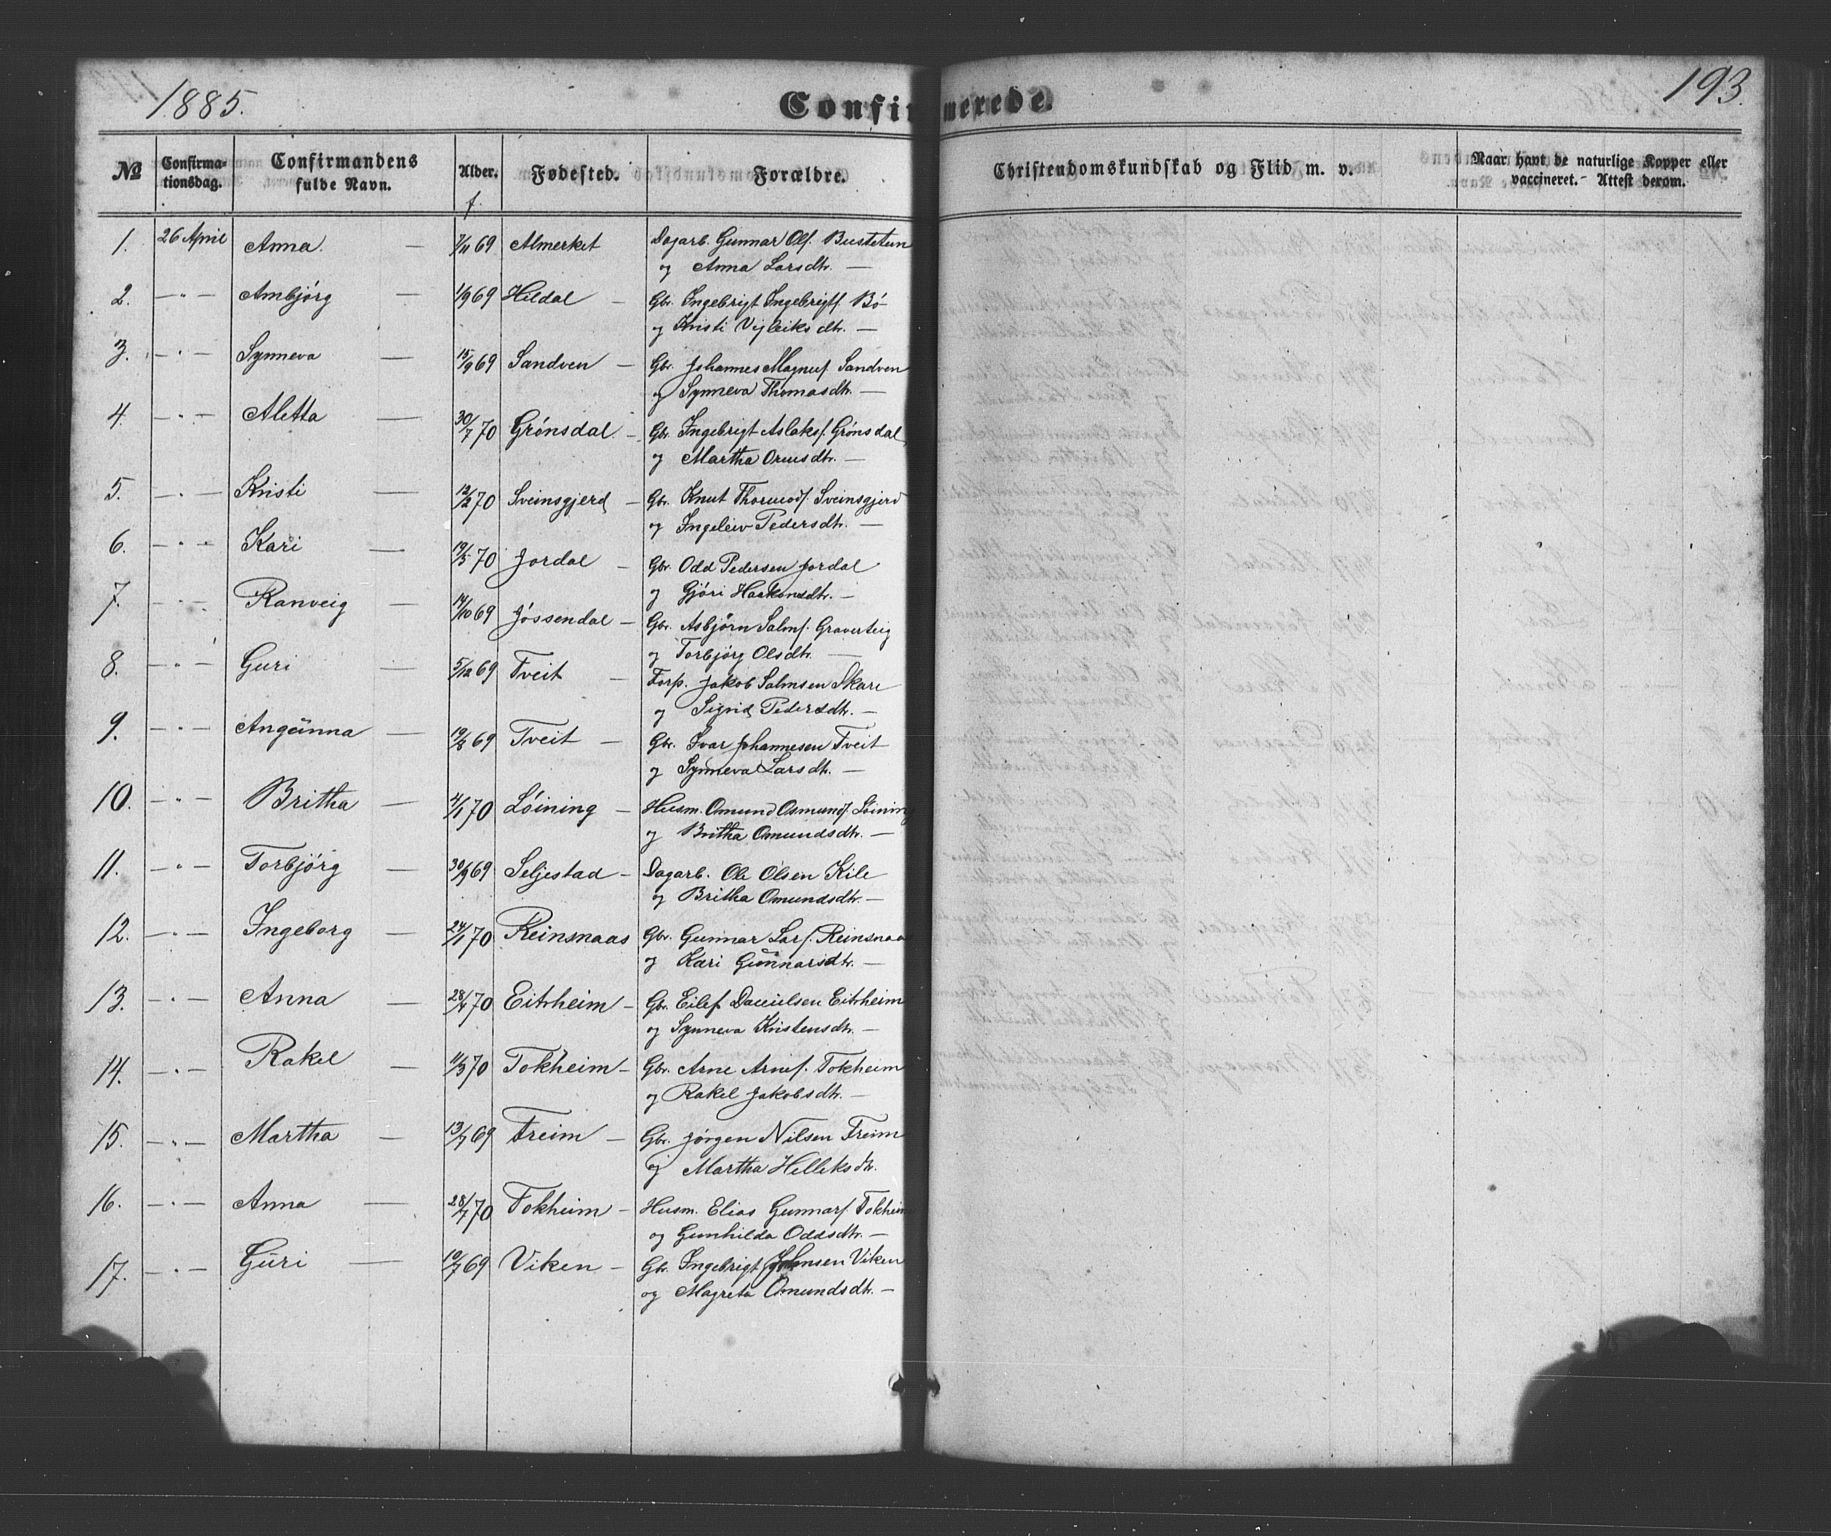 1885.
193.
Confirmerede.
№ Confirmationsdag. Confirmandens fulde Navn. Alder. Fødested. Forældre. Christendomskundskab og Flid m. v. Naar havt de naturlige Kopper eller vaccineret. - Attest derom.
f.
1. 26 April Anna. — 7/11 69 Almerket Dagarb. Gunnar Ols. Bustetun
og Anna Larsdtr. —
2. — " — Ambjörg — 1/9 69 Hildal — Gbr. Ingebrigt Ingebrigts. Bö
og Kristi Vigleiksdtr. —
3. — " — Synneva — 15/9 69 Sandven — Gbr. Johannes Magnus. Sandven
og Synneva Thomasdtr. —
4. — " — Aletta — 30/7 70 Grönsdal — Gbr. Ingebrigt Aslaks. Grönsdal
og Martha Ormsdtr. —
5. — " — Kristi — 12/2 70 Sveinsgjerd — Gbr. Knut Thormods. Sveinsgjerd
og Ingeleiv Pedersdtr. —
6. — " — Kari — 19/5 70 Jordal — Gbr. Odd Pedersen Jordal
og Gjöri Haakonsdtr. —
7. — " — Ranveig — 14/10 69 Jössendal — Gbr. Asbjörn Salms. Graverteig
og Torbjörg Olsdtr. —
8. — " — Guri — 5/12 69 Tveit — Forp. Jakob Salmsen Skare
og Sigrid Pedersdtr. —
9. — " — Angünna — 69 Tveit — Gbr. Ivar Johannesen Tveit
og Synneva Larsdtr. —
10. — " — Britha — 4/1 70 Löining — Husm. Omund Osmunds. Löining
og Britha Omundsdtr. —
11. — " — Torbjörg — 30/9 69 Seljestad — Dagarb. Ole Olsen Kile
og Britha Omundsdtr. —
12. — " — Ingeborg — 24/1 70 Reinsnaas Gbr. Gunnar Lars. Reinsnaas
og Kari Gunnarsdtr. —
13. — " — Anna — 28/4 70 Eitrheim — Gbr. Eilef Danielsen Eitrheim
og Synneva Kristensdtr. —
14. — " — Rakel — 11/3 70 Tokheim — Gbr. Arne Arnes. Tokheim
og Rakel Jakobsdtr. —
15. — " — Martha — 13/7 69 Freim — Gbr. Jörgen Nilsen Freim
og Martha Helleksdtr.
16. — " — Anna — 28/7 70 Tokheim — Husm. Elias Gunnars. Tokheim
og Gunhilda Oddsdtr. —
17. — " — Guri — 10/7 69 Viken — Gbr. Ingebrigt Johnsen Viken
og Magreta Omundsdtr. —